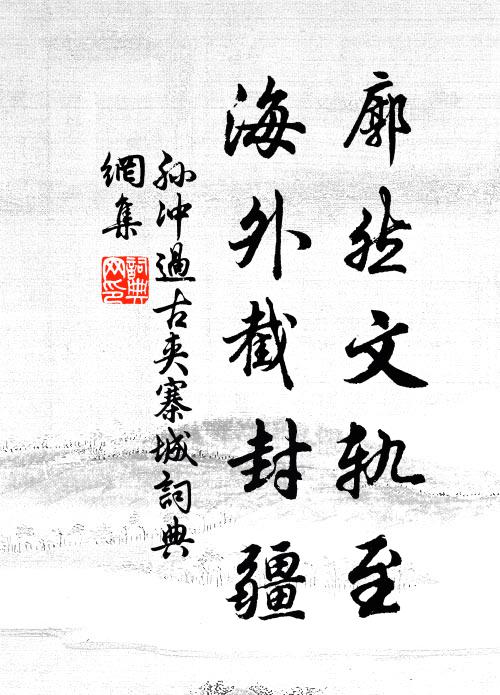 廓然文軌至
海外截封疆
孫沖過古夾寨城詞典
網集
詞典
网印